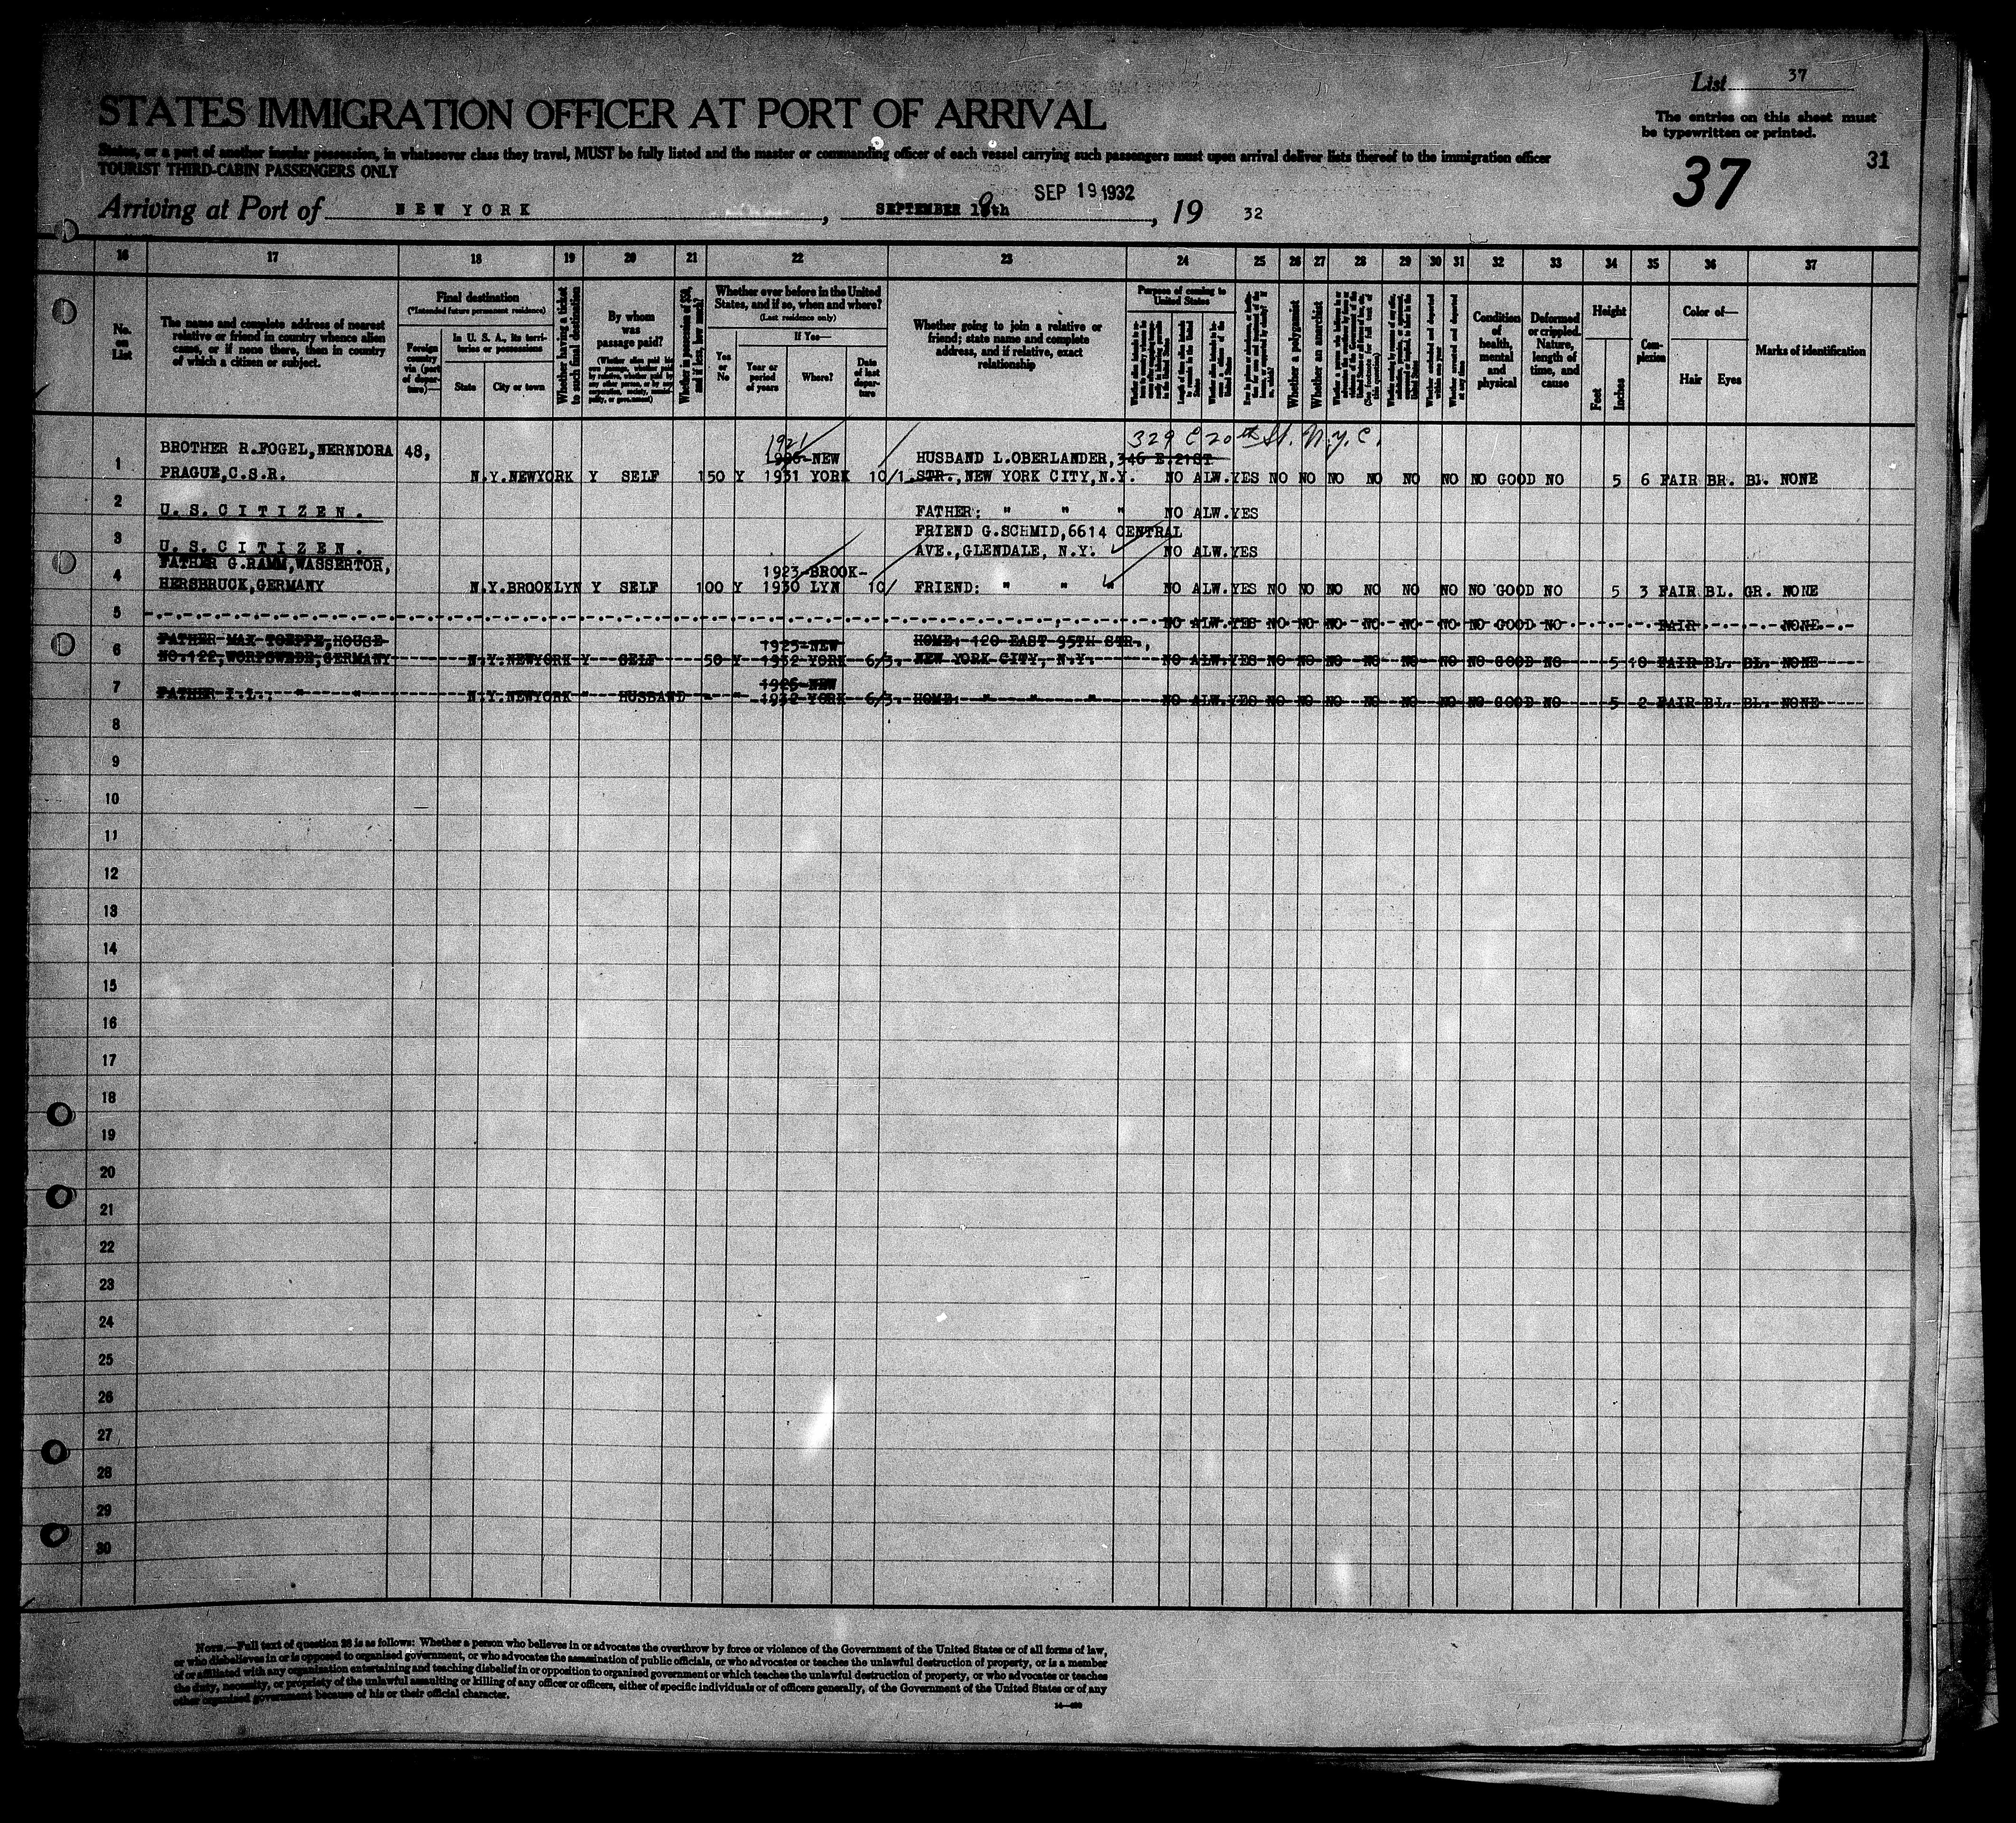 List 37
STATES IMMIGRATION OFFICER AT PORT OF ARRIVAL
The entries on this sheet must
be typewritten or printed.
States, or a part of another insular possession, in whatsoever class they travel, MUST be fully listed and the master or commanding officer of each vessel carrying such passengers must upon arrival deliver lists thereof to the immigration officer
TOURIST THIRD-CABIN PASSENGERS ONLY
37
31
SEP 19 1932
Arriving at Port of NEW YORK, SEPTEMBER 19th, 19 32
16 17 18 19 20 21 22 23 24 25 26 27 28 29 30 31 32 33 34 35 36 37
No. on List
The name and complete address of nearest
relative or friend in country whence alien
came, or if none there, then in country
of which a citizen or subject.
Final destination
(*Intended future permanent residence)
Foreign country via (port of departure)—
In U. S. A., its territories or possessions
State
City or town
Whether having a ticket to such final destination
By whom was passage paid?
Whether in possession of $50, and if less, how much?
Whether ever before in the United
States, and if so, when and where?
(Last residence only)
Yes or No
If Yes—
Year or period of years
Where?
Date of last departure
Whether going to join a relative or
friend; state name and complete
address, and if relative, exact
relationship
Purpose of coming to
United States
Whether a polygamist
Whether an anarchist
Condition of health, mental and physical
Deformed or crippled. Nature, length of time, and cause
Height
Feet
Inches
Complexion
Color of—
Hair
Eyes
Marks of identification
1921 329 E 20th St. N.Y.C.
BROTHER R.FOGEL,NERNDORA 48, NEW HUSBAND L.OBERLANDER, 346 E.21ST
1 PRAGUE,C.S.R. N.Y. NEWYORK Y SELF 150 Y 1931 YORK 10/1 STR.,NEW YORK CITY,N.Y. NO ALW. YES NO NO NO NO NO NO NO GOOD NO 5 6 FAIR BR. BL. NONE
2 U.S.CITIZEN. FATHER: " " " NO ALW. YES
FRIEND G.SCHMID,6614 CENTRAL
3 U.S.CITIZEN. AVE.,GLENDALE, N.Y. NO ALW. YES
FATHER G.RAMM,WASSERTOR, 1923-BROOK-
4 HERSBRUCK,GERMANY N.Y. BROOKLYN Y SELF 100 Y 1930 LYN 10/ FRIEND: " " " NO ALW. YES NO NO NO NO NO NO NO GOOD NO 5 3 FAIR BL. GR. NONE
5 NO ALW. YES NO NO NO NO NO NO NO GOOD NO FAIR NONE
FATHER MAX TOEPPE,HOUSE 1925-NEW HOME: 120 EAST 95TH STR.,
6 NO.122,WORPSWEDE,GERMANY N.Y. NEWYORK Y SELF 50 Y 1932 YORK 6/3. NEW YORK CITY, N.Y. NO ALW. YES NO NO NO NO NO NO NO GOOD NO 5 10 FAIR BL. BL. NONE
1926-NEW
7 FATHER I.L.: " " N.Y. NEWYORK " HUSBAND - " 1932 YORK 6/3. HOME: " " " NO ALW. YES NO NO NO NO NO NO NO GOOD NO 5 2 FAIR BL. BL. NONE
8
9
10
11
12
13
14
15
16
17
18
19
20
21
22
23
24
25
26
27
28
29
30
NOTE.—Full text of question 28 is as follows: Whether a person who believes in or advocates the overthrow by force or violence of the Government of the United States or of all forms of law,
or who disbelieves in or is opposed to organized government, or who advocates the assassination of public officials, or who advocates or teaches the unlawful destruction of property, or is a member
of or affiliated with any organization entertaining and teaching disbelief in or opposition to organized government or which teaches the unlawful destruction of property, or who advocates or teaches
the duty, necessity, or propriety of the unlawful assaulting or killing of any officer or officers, either of specific individuals or of officers generally, of the Government of the United States or of any
other organized government because of his or their official character.